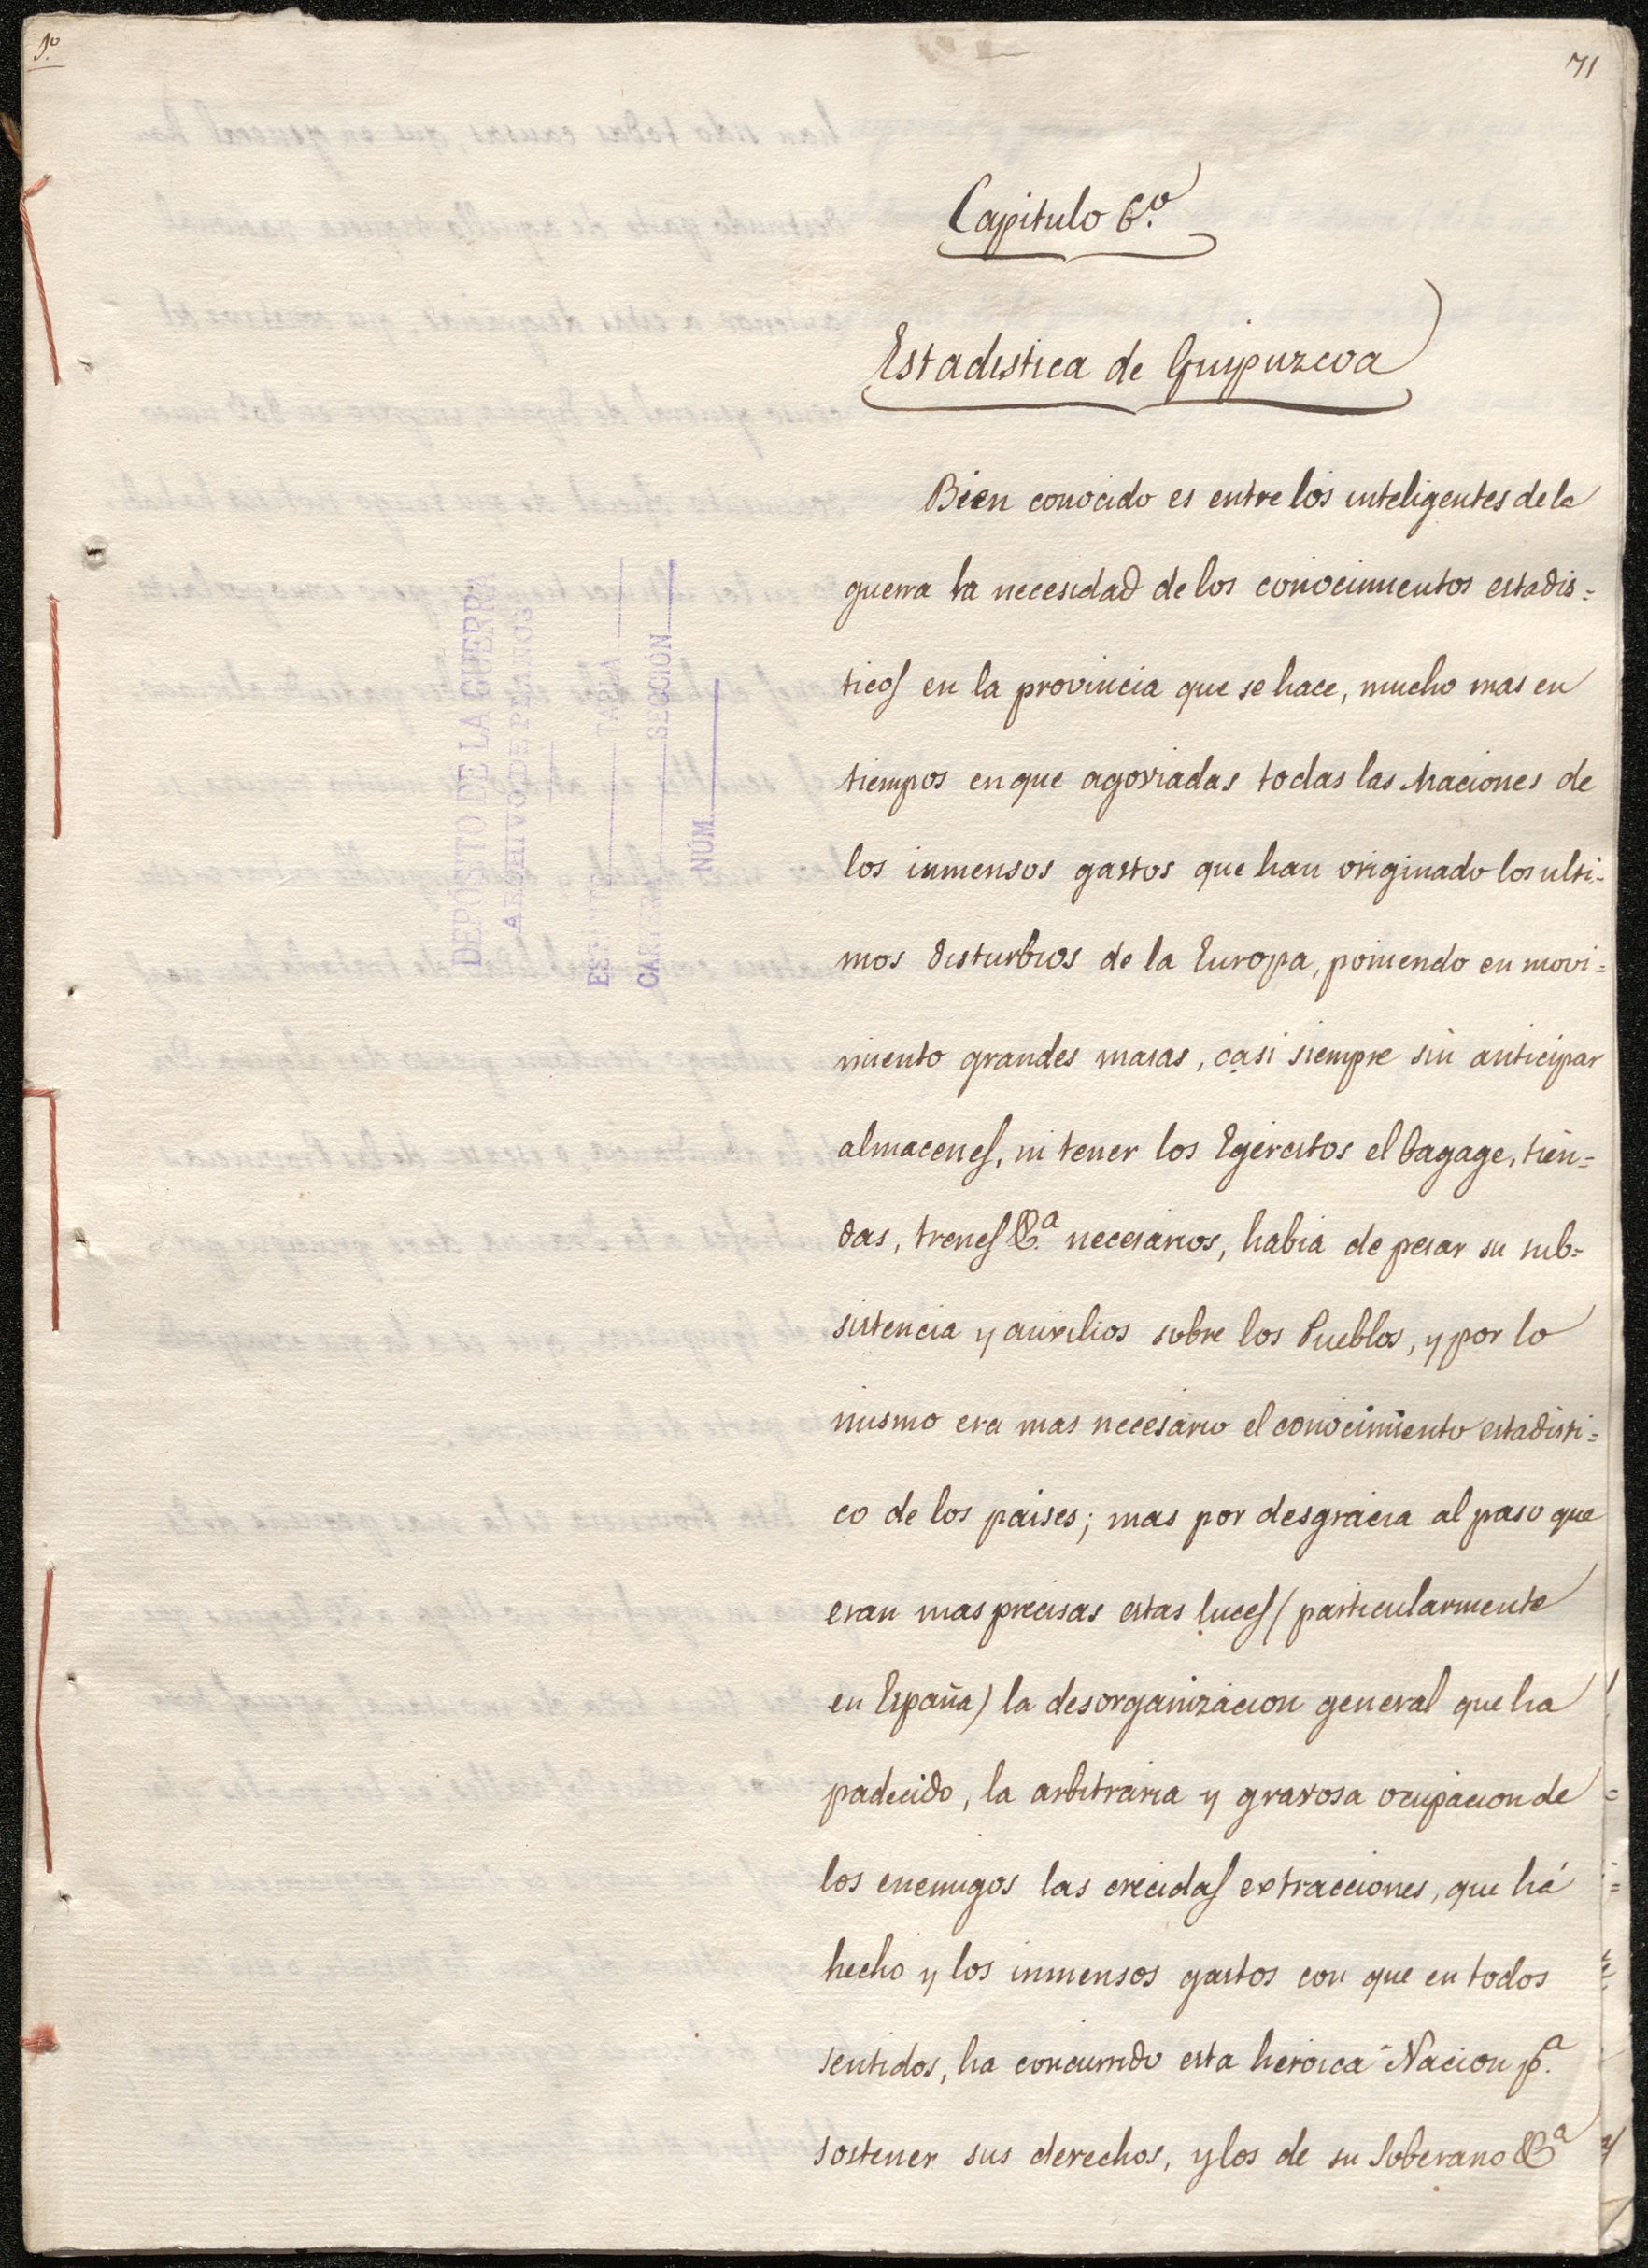 1º
71
Capitulo 6.º
Estadistica de Guipuzcoa
Bien conocido es entre los inteligentes de la
guerra la necesidad de los conocimientos estadis=
ticos en la provincia que se hace, mucho mas en
tiempos en que agoviadas todas las Naciones de
los inmensos gastos que han originado los ulti=
mos disturbios de la Europa, poniendo en movi=
miento grandes masas, casi siempre sin anticipar
almacenes, ni tener los Egercitos el bagage, tien=
das, trenes &.ª necesarios, habia de pesar su sub=
sistencia y auxilios sobre los Pueblos, y por lo
mismo era mas necesario el conocimiento estadisti=
co de los paises; mas por desgracia al paso que
eran mas precisas estas luces (particularmente
en España) la desorganizacion general que ha
padecido, la arbitraria y gravosa ocupacion de
los enemigos las crecidas extracciones, que há
hecho y los inmensos gastos con que en todos
sentidos, ha concurrido esta heroica Nacion p.ª
sostener sus derechos, y los de su Soberano &ª
DEPÓSITO DE LA GUERRA
ARCHIVO DE PLANOS
ESTANTE TABLA
CARTERA SECCIÓN
NÚM.